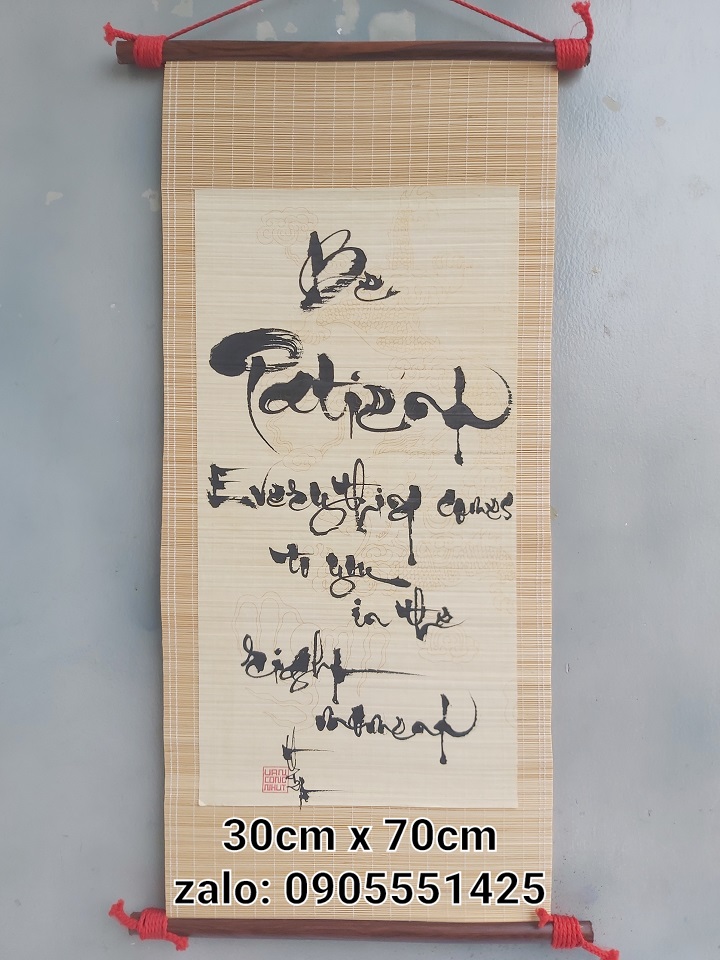 Be
Patient
Everything comes
to you
in the
right
moment
VAN
CONG
NHUT
30cm x 70cm
zalo: 0905551425